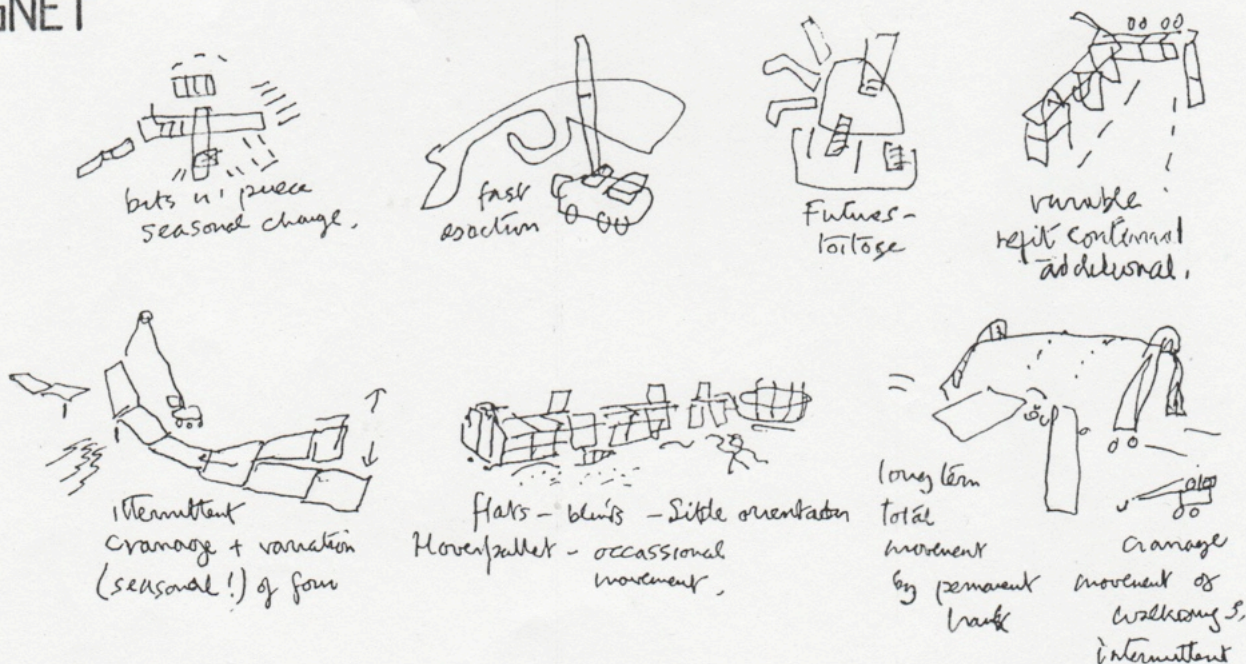 GNET
bits n' piece
seasonal change.
fast
Futures-
tortoge
variable
refit continual
additional.
intermittent
cranage + variation
(seasonal!) of form
flats - blinds - Sitble orientation
Hoverpallet - occassional
movement.
long term
total
movement
by permanent
cranage
movement of
intermittent